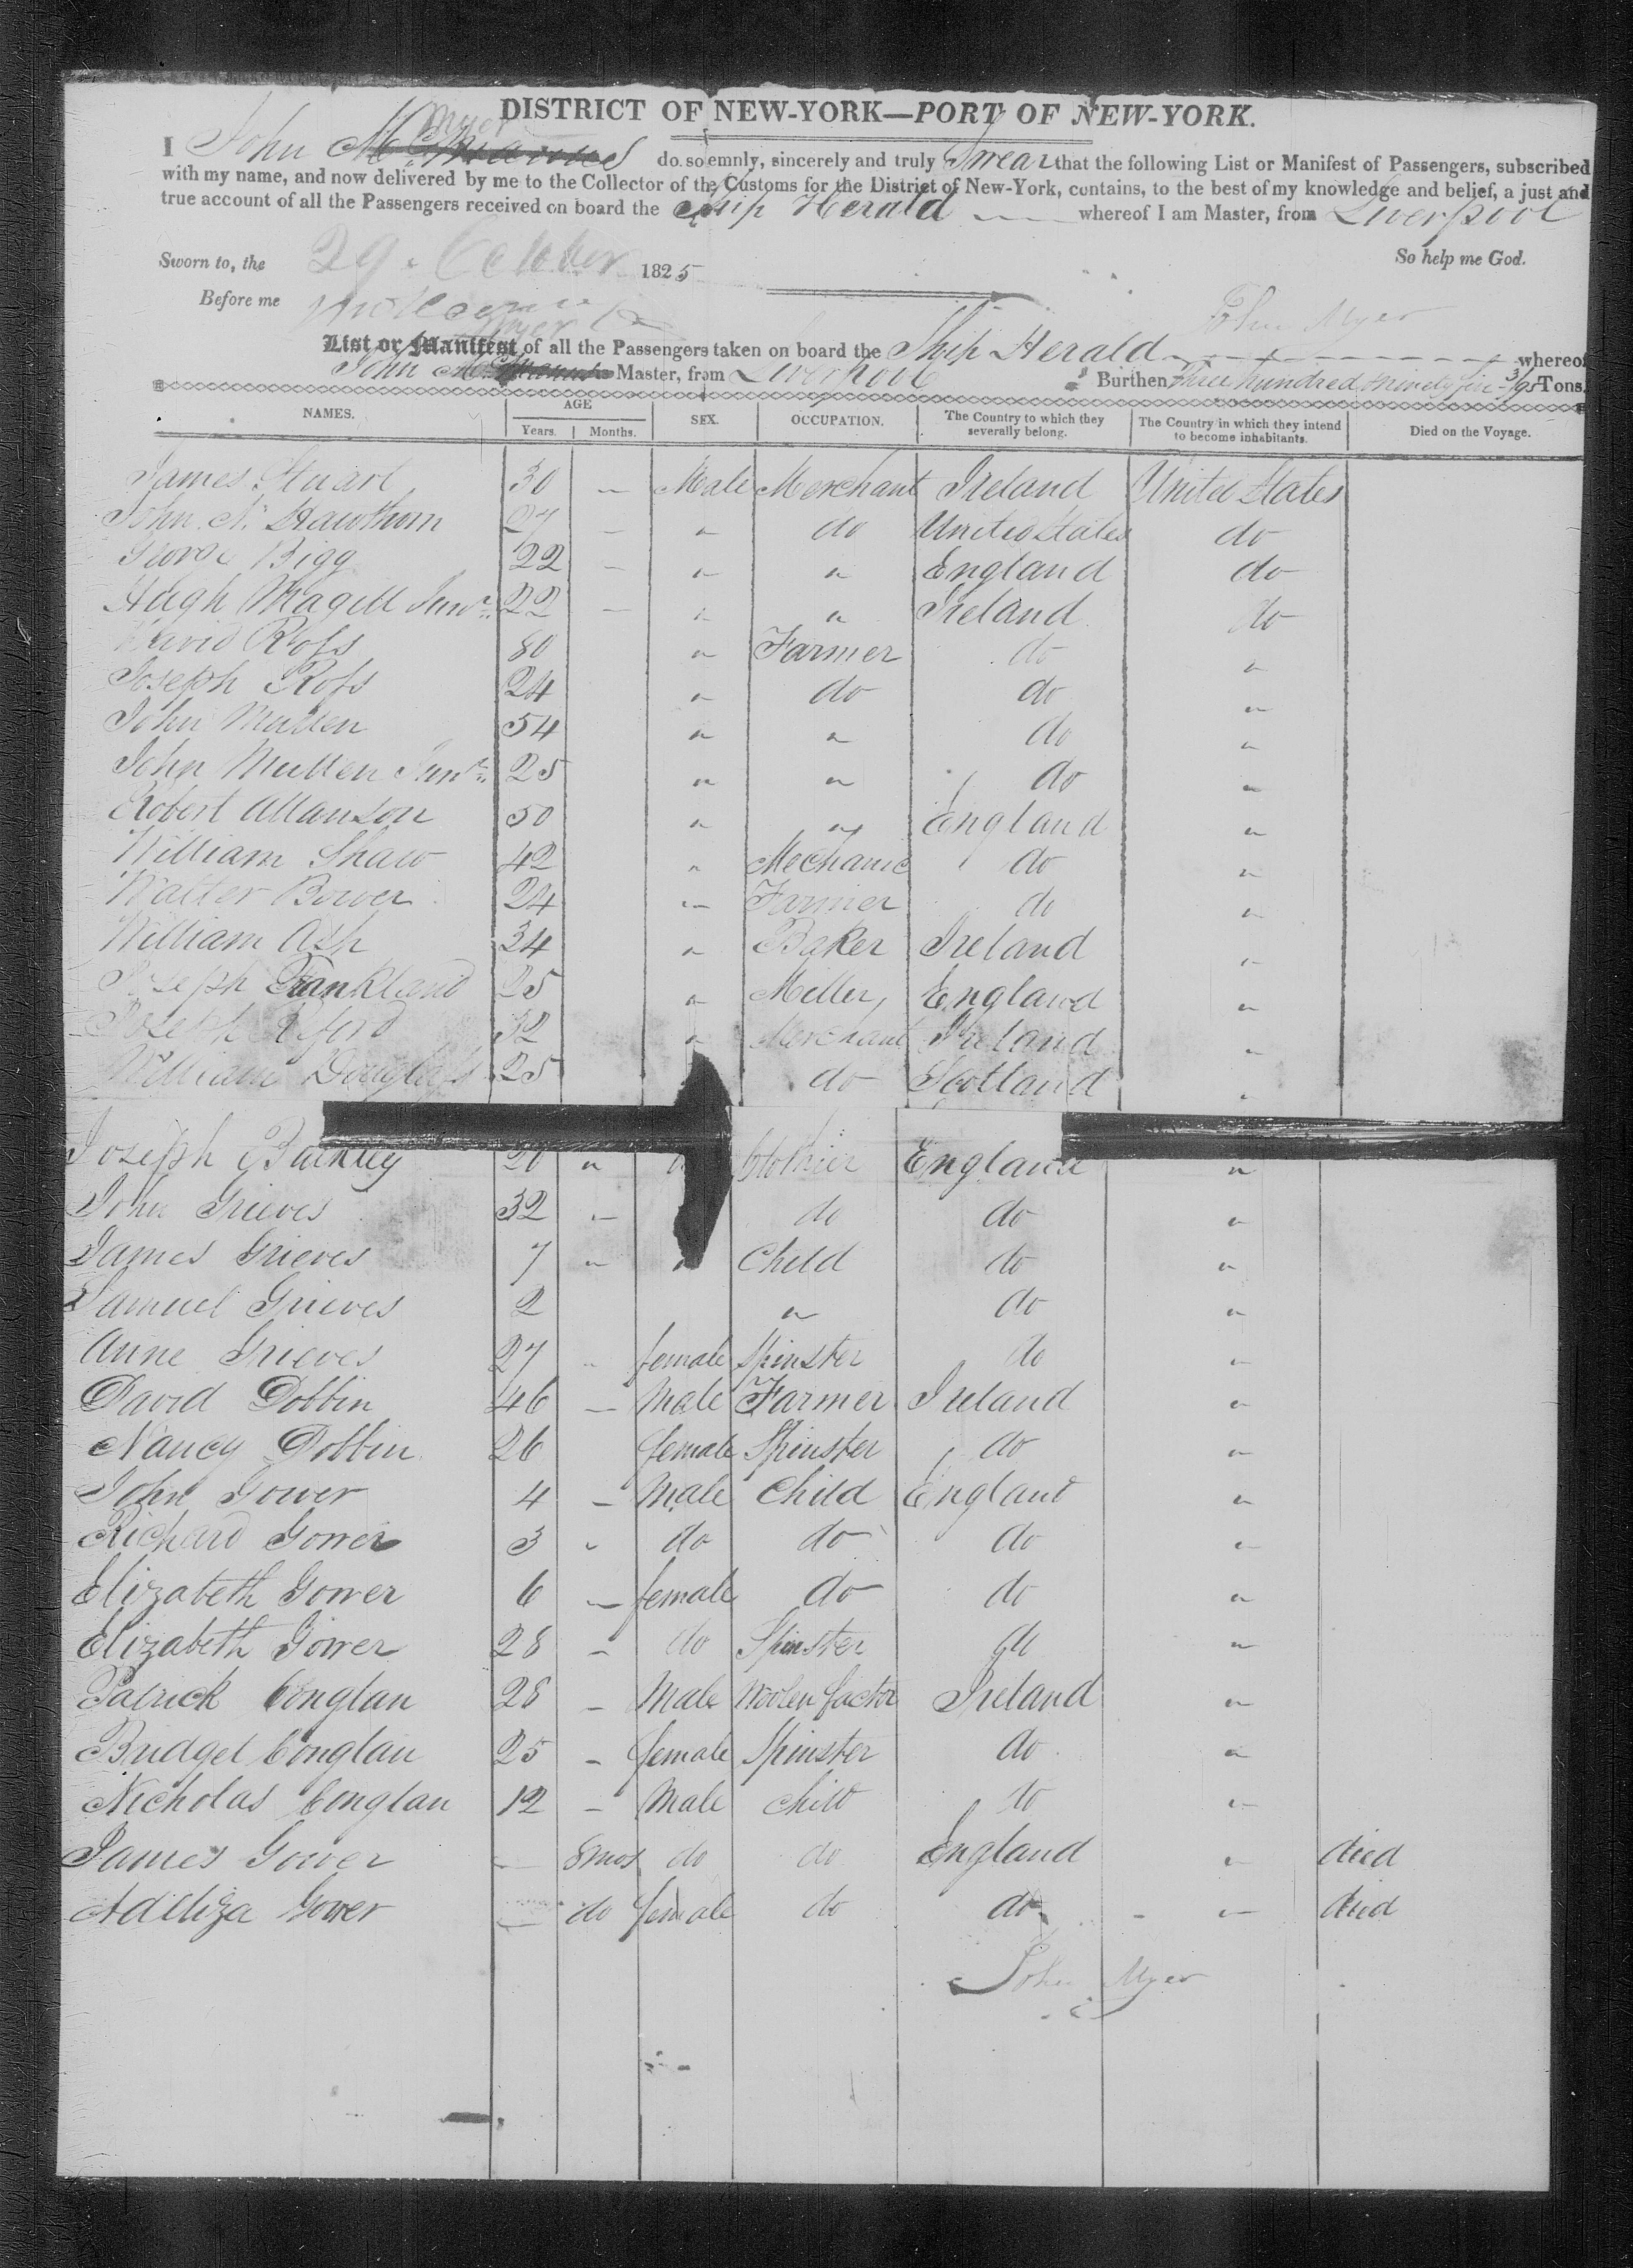 DISTRICT OF NEW-YORK—PORT OF NEW-YORK.
Myer
I John do solemnly, sincerely and truly Swear that the following List or Manifest of Passengers, subscribed
with my name, and now delivered by me to the Collector of the Customs for the District of New-York, contains, to the best of my knowledge and belief, a just and
true account of all the Passengers received on board the Ship Herald whereof I am Master, from Liverpool
So help me God.
Sworn to, the 29 October 1825
Before me
John Myer
Myer
List or Manifest of all the Passengers taken on board the Ship Herald whereof
John Master, from Liverpool Burthen Three hundred & ninety five 3/95 Tons.
NAMES. AGE Years. Months. SEX. OCCUPATION. The Country to which they severally belong. The Country in which they intend to become inhabitants. Died on the Voyage.
James Stuart 30 — Male Merchant Ireland United States
John N. Hawthorn 27 — " do United States do
George Bigg 22 — " " England do
Hugh Magill Junr. 22 — " " Ireland do
David Ross 80 " Farmer do "
Joseph Ross 24 " do do "
John Mullen 54 " " do "
John Mullen Junr. 25 " " do "
Robert Allanson 50 " " England "
William Shaw 42 " Mechanic do "
Walter Bower 24 " Farmer do "
William Ash 34 " Baker Ireland "
Joseph Frankland 25 " Miller England "
Joseph 32 " Merchant Ireland "
William Douglass 25 do Scotland "
Joseph Buckley 20 " Clothier England "
John Grieves 32 — do do "
James Grieves 7 " " Child do "
Samuel Grieves 2 " do "
Anne Grieves 27 " female Spinster do "
David Dobbin 46 — Male Farmer Ireland "
Nancy Dobbin 26 female Spinster do "
John Gower 4 — Male Child England "
Richard Gower 3 " do do do "
Elizabeth Gower 6 — female do do "
Elizabeth Gower 28 — do Spinster do "
Patrick Conglan 28 — Male Woolen factor Ireland "
Bridget Conglan 25 — female Spinster do "
Nicholas Conglan 12 — Male Child do "
James Gower — 8 mos do do England " died
Adeliza Gower — do female do do " died
John Myer